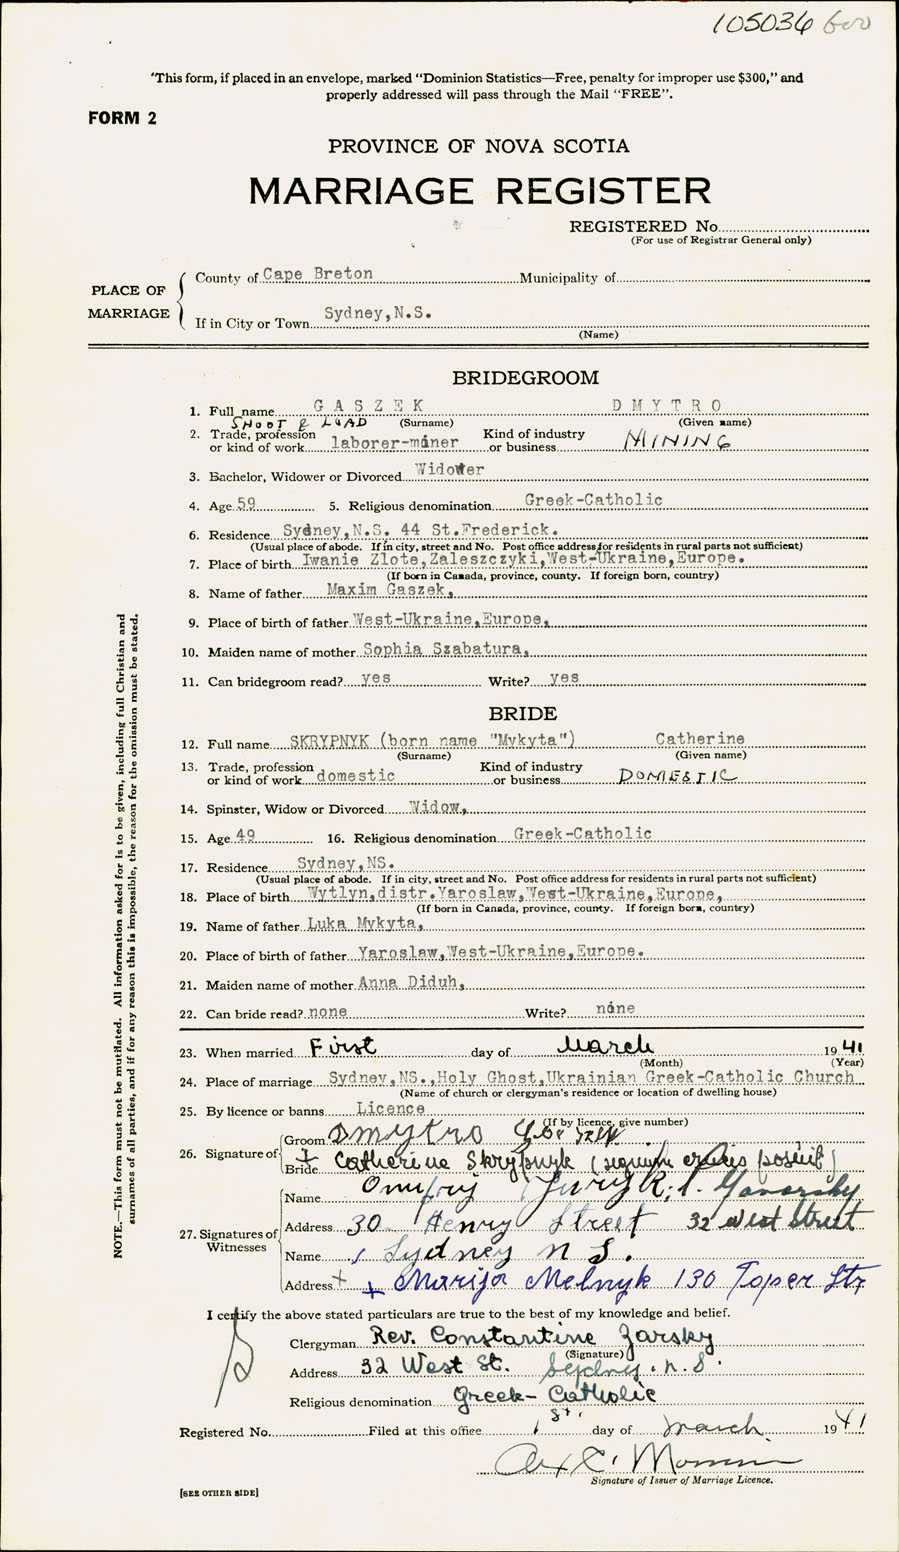 105036 600
"This form, if placed in an envelope, marked "Dominion Statistics—Free, penalty for improper use $300," and
properly addressed will pass through the Mail "FREE".
FORM 2
PROVINCE OF NOVA SCOTIA
MARRIAGE REGISTER
REGISTERED No.
(For use of Registrar General only)
PLACE OF MARRIAGE
County of Cape Breton Municipality of
If in City or Town Sydney,N.S.
(Name)
BRIDEGROOM
1. Full name GASZEK DMYTRO
SHOOT & LOAD (Surname) (Given name)
2. Trade, profession or kind of work laborer-miner Kind of industry or business MINING
3. Bachelor, Widower or Divorced Widower
4. Age 59 5. Religious denomination Greek-Catholic
6. Residence Sydney,N.S. 44 St.Frederick.
(Usual place of abode. If in city, street and No. Post office address for residents in rural parts not sufficient)
7. Place of birth Iwanie Zlote,Zaleszczyki,West-Ukraine,Europe.
(If born in Canada, province, county. If foreign born, country)
8. Name of father Maxim Gaszek,
9. Place of birth of father West-Ukraine,Europe,
10. Maiden name of mother Sophia Szabatura,
11. Can bridegroom read? yes Write? yes
BRIDE
12. Full name SKRYPNYK (born name "Mykyta") Catherine
(Surname) (Given name)
13. Trade, profession or kind of work domestic Kind of industry or business DOMESTIC
14. Spinster, Widow or Divorced Widow,
15. Age 49 16. Religious denomination Greek-Catholic
17. Residence Sydney,NS.
(Usual place of abode. If in city, street and No. Post office address for residents in rural parts not sufficient)
18. Place of birth Wytlyn,distr.Yaroslaw,West-Ukraine,Europe,
(If born in Canada, province, county. If foreign born, country)
19. Name of father Luka Mykyta,
20. Place of birth of father Yaroslaw,West-Ukraine,Europe.
21. Maiden name of mother Anna Diduh,
22. Can bride read? none Write? none
23. When married First day of March 1941
(Month) (Year)
24. Place of marriage Sydney,NS.,Holy Ghost,Ukrainian Greek-Catholic Church
(Name of church or clergyman's residence or location of dwelling house)
25. By licence or banns Licence
(If by licence, give number)
26. Signature of Groom Dmytro
Bride + Catherine Skrypnyk (signum crucis posuit)
27. Signatures of Witnesses
Name Onufrey
Address 30 Henry Street 32 West Street
Name Sydney N S.
Address + Marija Melnyk 130 Toper Str
I certify the above stated particulars are true to the best of my knowledge and belief.
Clergyman Rev. Constantine Zarsky
(Signature)
Address 32 West St. Sydney. N.S.
Religious denomination Greek-Catholic
Registered No. Filed at this office 1st. day of March 1941
Signature of Issuer of Marriage Licence.
[SEE OTHER SIDE]
NOTE.—This form must not be mutilated. All information asked for is to be given, including full Christian and
surnames of all parties, and if for any reason this is impossible, the reason for the omission must be stated.